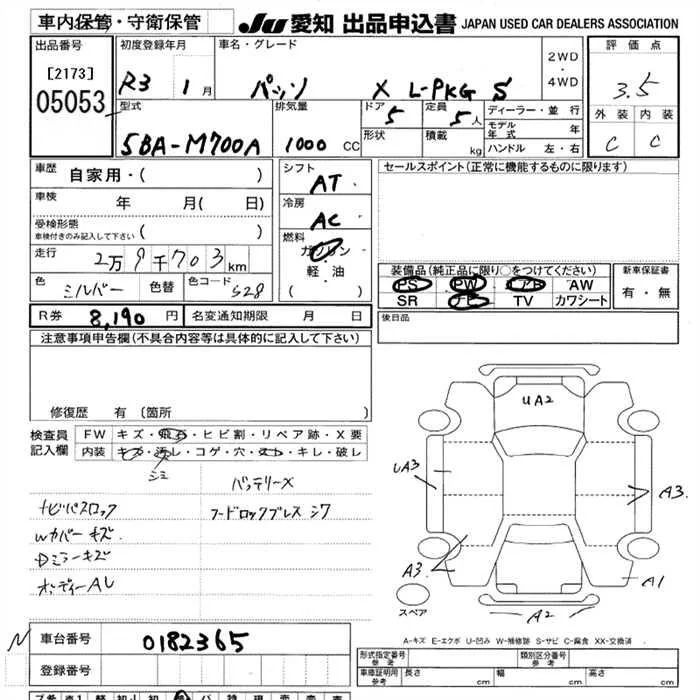 車内保管・守衛保管 JU 愛知 出品申込書 JAPAN USED CAR DEALERS ASSOCIATION
出品番号 初度登録年月 車名・グレード 評価点
[2173] R3 1月 パッソ X L-PKG S 2WD・4WD 3.5
05053
型式 排気量 ドア 定員 ディーラー・並行 外装 内装
5BA-M700A 1000 CC 5 5人 モデル年式 年 C C
形状 積載 kg ハンドル 左・右
車歴 自家用・( ) シフト AT セールスポイント(正常に機能するものに限ります)
車検 年 月( 日) 冷房 AC
受検形態 車検付きのみ記入して下さい ( ) 燃料
走行 2万9千703km ガソリン・軽油 ( )
装備品(純正品に限り○をつけてください) 新車保証書
色 シルバー 色替 色コード S28 PS PW AB AW 有・無
SR ナビ TV カワシート
R券 8,190円 名変通知期限 月 日 後日品
注意事項申告欄(不具合内容等は具体的に記入して下さい)
修復歴 有(箇所
検査員記入欄 FW キズ・飛石・ヒビ割・リペア跡・X要
内装 キズ・汚れ・コゲ・穴・スレ・キレ・破レ
シミ
バッテリーX
ナビパスロック フードロックブレス シワ
Wカバーキズ
Dミラーキズ
ボディーAU
UA2
UA3 A3
A3 A1
スペア A2
A-キズ E-エクボ U-凹み W-補修跡 S-サビ C-腐食 XX-交換済
N 車台番号 0182365
登録番号
形式指定番号 参考 類別区分番号 参考
車庫証明用 参考 長さ cm 幅 cm 高さ cm